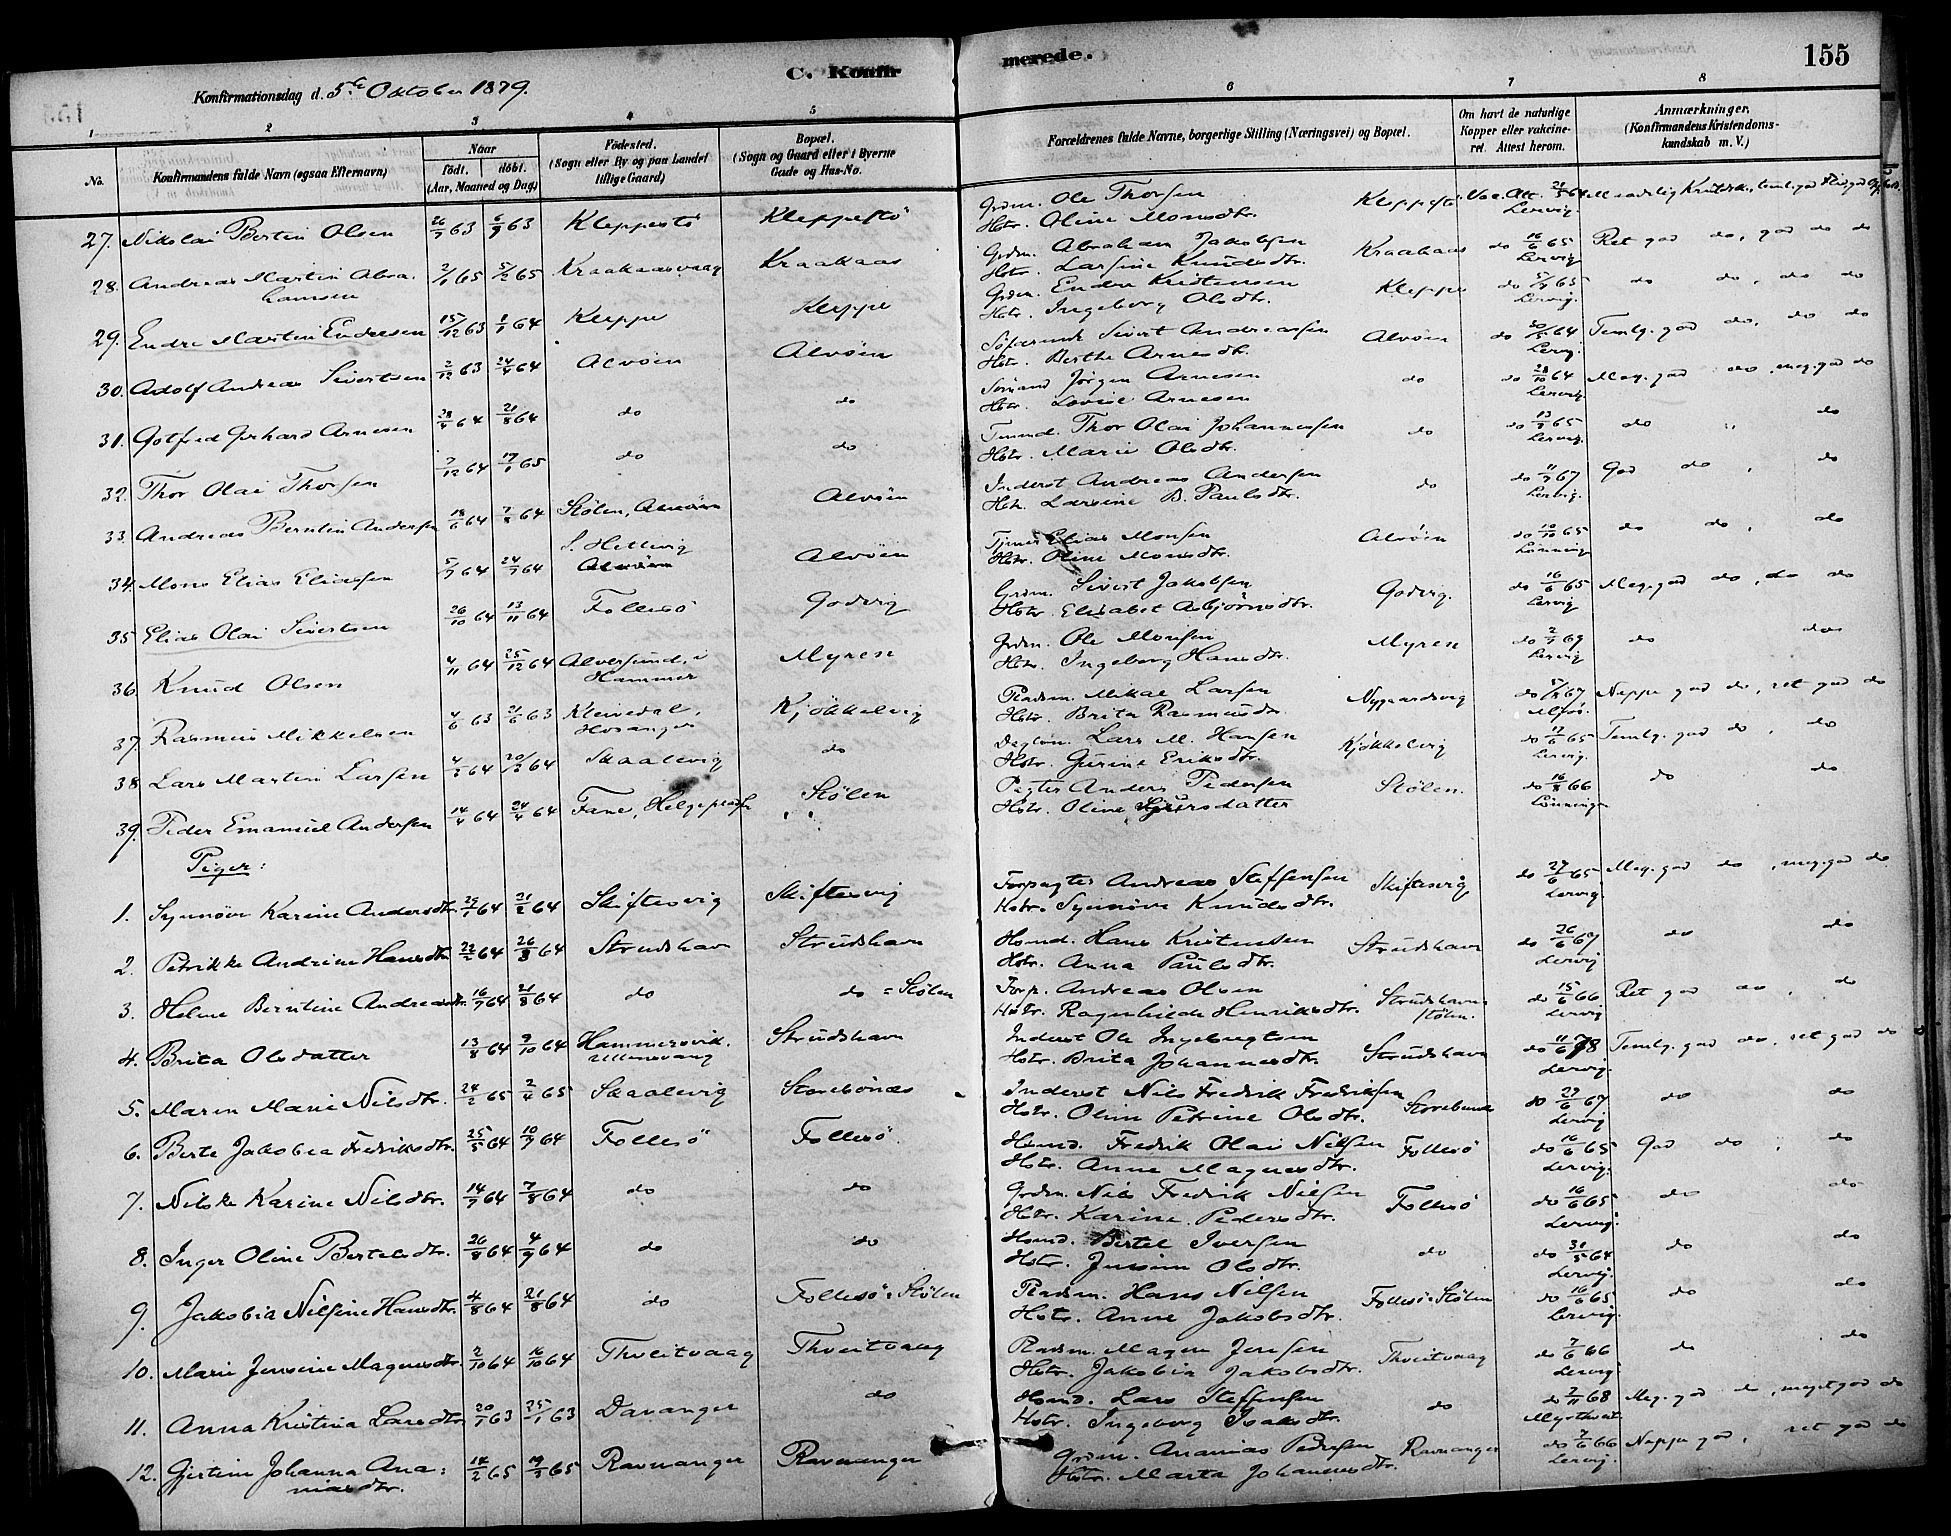 C. Konfir
merede.
155
Konfirmationsdag d. 5te Oktober 1879.
1 2 3 4 5 6 7 8
No.
Konfirmandens fulde Navn (ogsaa Efternavn)
Naar
født. døbt.
(Aar, Maaned og Dag)
Fødested.
(Sogn eller By og paa Landet
tillige Gaard)
Bopæl.
(Sogn og Gaard eller i Byerne
Gade og Hus-No.
Forældrenes fulde Navne, borgerlige Stilling (Næringsvei) og Bopæl.
Om havt de naturlige
Kopper eller vakcine-
ret. Attest herom.
Anmærkninger.
(Konfirmandens Kristendoms-
kundskab m. V.)
27. Nikolai Bertin Olsen 63 6/9 63 Kleppestö Kleppestö Grdm. Ole Thorsen Hstr. Oline Monsdtr. Kleppestö Vac. Att. Lervig
28. Andreas Martin Abra- hamsen 2/1 65 5/2 65 Kraakaasvaag Kraakaas Grdm. Abraham Jakobsen Hstr. Larsine Knudsdtr. Kraakaas do 16/6 65 Lervig Ret god do, god do do
29. Endre Martin Endresen 15/12 63 1/1 64 Kleppe Kleppe Grdm. Endre Kristensen Hstr. Ingeborg Olsdtr. Kleppe do 65 Lervig do do, do do
30. Adolf Andreas Sivertsen 2/12 63 24/4 64 Alvöen Alvöen Sivert Andreassen Hstr. Berthe Arnesdtr. Alvöen do 64 Lervig Temlg. god do, do do
31. Gotfred Gerhard Arnesen 64 21/8 64 do do Sömand Jörgen Arnesen Hstr. Lovise Arnesen do do 28/10 64 Lervig Meg. god do, meg. god do
32. Thor Olai Thorsen 7/12 64 17/1 65 do do Thor Olai Johannessen Hstr. Marie Olsdtr. do do 65 Lervig do do
33. Andreas Berntin Andersen 18/6 64 7/8 64 Stölen, Alvöen Alvöen Inderst Andreas Andersen Hstr. Larsine B. Paulsdtr. do do 67 Lervig. God do, do
34. Mons Elias Eliassen 5/7 64 24/7 64 S. Hellevig Alvöen Alvöen Elias Monsen Hstr. Oline Monsdtr. Alvöen do 10/10 65 Lönning do do, do
35. Elias Olai Sivertsen 26/10 64 13/11 64 Follesö Godvig Grdm. Sivert Jakobsen Hstr. Elisabet Asbjörnsdtr. Godvig. do 16/6 65 Lervig Meg. god do, do do
36. Knud Olsen 4/11 64 25/12 64 Alversund, i Hammer Myren Grdm. Ole Monsen Hstr. Ingeborg Hansdtr. Myren do 69 Lervig do do
37. Rasmus Mikkelsen 4/6 63 21/6 63 Kleivedal, Hosanger Kjökkelvig Pladsm. Mikal Larsen Hstr. Brita Rasmusdtr. Nygaardsvig do 67 Neppe god do, ret god do
38. Lars Martin Larsen 64 64 Skaalevig do Daglön. Lars M. Hansen Hstr. Gurine Eriksdtr. Kjökkelvig do 65 Lervig. Temlg. god do, do
39. Peder Emanuel Andersen 14/4 64 24/4 64 Fane, Stölen Pagter Anders Pedersen Hstr. Oline Stölen. do 16/8 66 Lönninge do do
Piger:
1. Synnöve Karine Andersdtr. 64 21/2 64 Skiftesvig Skiftesvig Forpagter Andreas Steffensen Hstr. Synnöve Knudsdtr. Skiftesvig do 27/6 65 Lervig. Meg. god do, meg. god do
2. Petrikke Andrine Hansdtr. 64 26/8 64 Strudshavn Strudshavn Hsmd. Hans Kristensen Hstr. Anna Paulsdtr. Strudshavn do 26/6 67 Lervig do do
3. Helene Berntine Andreasdtr. 16/7 64 21/8 64 do do = Stölen Forp. Andreas Olsen Hstr. Ragnhilde Henriksdtr. Strudshavn stölen. do 15/6 66 Lervig Ret god do, do
4. Brita Olsdatter 13/8 64 9/10 64 Hammersvik. Ullensvang Strudshavn Inderst Ole Ingebrigtsen Hstr. Brita Johannesdtr. Strudshavn do 11/6 78 Lervig. Temlg. god do, ret god do
5. Maren Marie Nilsdtr. 24/2 65 2/4 65 Skaalevig Storebönes Inderst Nils Fredrik Fredriksen Hstr. Olina Petrine Olsdtr. do 27/6 67 Lervig do do
6. Berte Jakobea Fredriksdtr. 25/5 64 10/7 64 Follesö Follesö. Hsmd. Fredrik Olai Nilsen Hstr. Anne Magnesdtr. Follesö do 16/6 65 Lervig. God do, do
7. Nilske Karine Nilsdtr. 14/7 64 7/8 64 do do Grdm. Nils Fredrik Nilsen Hstr. Karine Pedersdtr. Follesö do 16/6 65 Lervig. do do
8. Inger Oline Bertelsdtr. 26/8 64 4/9 64 do do Hsmd. Bertel Iversen Hstr. Jensine Olsdtr. do do 31/5 64 Lervig. do do
9. Jakobia Nilsine Hansdtr. 4/8 64 21/8 64 do Follesö = Stölen Pladsm. Hans Nilsen Hstr. Anne Jakobsdtr. Follesö = Stölen do 16/6 65 Lervig. do do
10. Marie Jensine Magnesdtr. 2/10 64 16/10 64 Thveitvaag Thveitvaag Pladsm. Magne Jensen Hstr. Jakobia Jakobsdtr. Thveitvaag do 7/6 66 Lervig do do
11. Anna Kristina Larsdtr. 63 25/1 63 Davanger do Hsmd. Lars Steffensen Hstr. Ingeborg Isaksdtr. do do 68 Meg. god do, meget god do
12. Gjertine Johanna Ana: niasdtr. 65 65 Ravnanger Ravnanger Grdm. Ananias Pedersen Hstr. Marta Johannesdtr. Ravnanger do 7/6 66 Lervig. Neppe god, ret god do